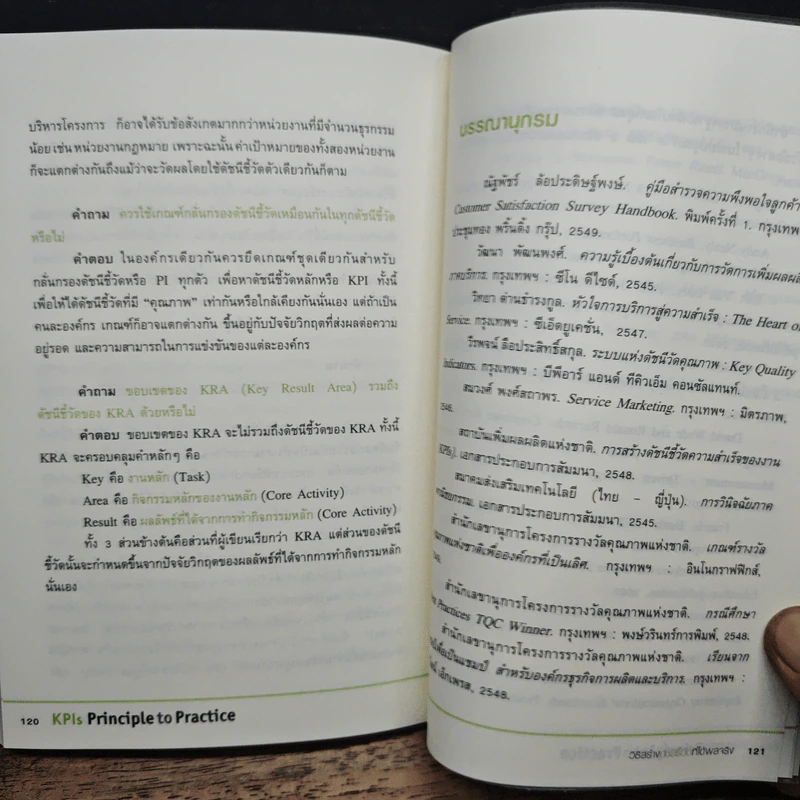 บริหารโครงการ ก็อาจได้รับข้อสังเกตมากกว่าหน่วยงานที่มีจำนวนธุรกรรม
น้อย เช่น หน่วยงานกฎหมาย เพราะฉะนั้น ค่าเป้าหมายของทั้งสองหน่วยงาน
ก็จะแตกต่างกันถึงแม้ว่าจะวัดผลโดยใช้ดัชนีชี้วัดตัวเดียวกันก็ตาม
คำถาม ควรใช้เกณฑ์กลั่นกรองดัชนีชี้วัดเหมือนกันในทุกดัชนีชี้วัด
หรือไม่
คำตอบ ในองค์กรเดียวกันควรยึดเกณฑ์ชุดเดียวกันสำหรับ
กลั่นกรองดัชนีชี้วัดหรือ PI ทุกตัว เพื่อหาดัชนีชี้วัดหลักหรือ KPI ทั้งนี้
เพื่อให้ได้ดัชนีชี้วัดที่มี “คุณภาพ” เท่ากันหรือใกล้เคียงกันนั่นเอง แต่ถ้าเป็น
คนละองค์กร เกณฑ์ก็อาจแตกต่างกัน ขึ้นอยู่กับปัจจัยวิกฤตที่ส่งผลต่อความ
อยู่รอด และความสามารถในการแข่งขันของแต่ละองค์กร
คำถาม ขอบเขตของ KRA (Key Result Area) รวมถึง
ดัชนีชี้วัดของ KRA ด้วยหรือไม่
คำตอบ ขอบเขตของ KRA จะไม่รวมถึงดัชนีชี้วัดของ KRA ทั้งนี้
KRA จะครอบคลุมคำหลักๆ คือ
Key คือ งานหลัก (Task)
Area คือ กิจกรรมหลักของงานหลัก (Core Activity)
Result คือ ผลลัพธ์ที่ได้จากการทำกิจกรรมหลัก (Core Activity)
ทั้ง 3 ส่วนข้างต้นคือส่วนที่ผู้เขียนเรียกว่า KRA แต่ส่วนของดัชนี
ชี้วัดนั้นจะกำหนดขึ้นจากปัจจัยวิกฤตของผลลัพธ์ที่ได้จากการทำกิจกรรมหลัก
นั่นเอง
120 KPIs Principle to Practice
บรรณานุกรม
ณัฐพัชร์ ล้อประดิษฐ์พงษ์. คู่มือสำรวจความพึงพอใจลูกค้า
Customer Satisfaction Survey Handbook. พิมพ์ครั้งที่ 1. กรุงเทพ
ประชุมทอง พริ้นติ้ง กรุ๊ป, 2549.
วัฒนา พัฒนพงศ์. ความรู้เบื้องต้นเกี่ยวกับการวัดการเพิ่มผลผลิ
ภาคบริการ. กรุงเทพฯ : ซีโน ดีไซด์, 2545.
วิทยา ด่านธำรงกูล. หัวใจการบริการสู่ความสำเร็จ : The Heart of
Service. กรุงเทพฯ : ซีเอ็ดยูเคชั่น, 2547.
วีรพจน์ ลือประสิทธิ์สกุล. ระบบแห่งดัชนีวัดคุณภาพ : Key Quality
Indicators. กรุงเทพฯ : บีพีอาร์ แอนด์ ทีคิวเอ็ม คอนซัลแทนท์.
สมวงศ์ พงศ์สถาพร. Service Marketing. กรุงเทพฯ : มิตรภาพ,
2546.
สถาบันเพิ่มผลผลิตแห่งชาติ. การสร้างดัชนีชี้วัดความสำเร็จของงาน
KPIs). เอกสารประกอบการสัมมนา, 2548.
สมาคมส่งเสริมเทคโนโลยี (ไทย - ญี่ปุ่น). การวินิจฉัยภาค
เอกสารประกอบการสัมมนา, 2545.
สำนักเลขานุการโครงการรางวัลคุณภาพแห่งชาติ. เกณฑ์รางวัล
ภาพแห่งชาติเพื่อองค์กรที่เป็นเลิศ. กรุงเทพฯ : อินโนกราฟฟิกส์,
สำนักเลขานุการโครงการรางวัลคุณภาพแห่งชาติ. กรณีศึกษา
Practices TQC Winner. กรุงเทพฯ : พงษ์วรินทร์การพิมพ์, 2548.
สำนักเลขานุการโครงการรางวัลคุณภาพแห่งชาติ. เรียนจาก
เพื่อเป็นแชมป์ สำหรับองค์กรธุรกิจการผลิตและบริการ. กรุงเทพฯ :
เอ็กเพรส, 2548.
121